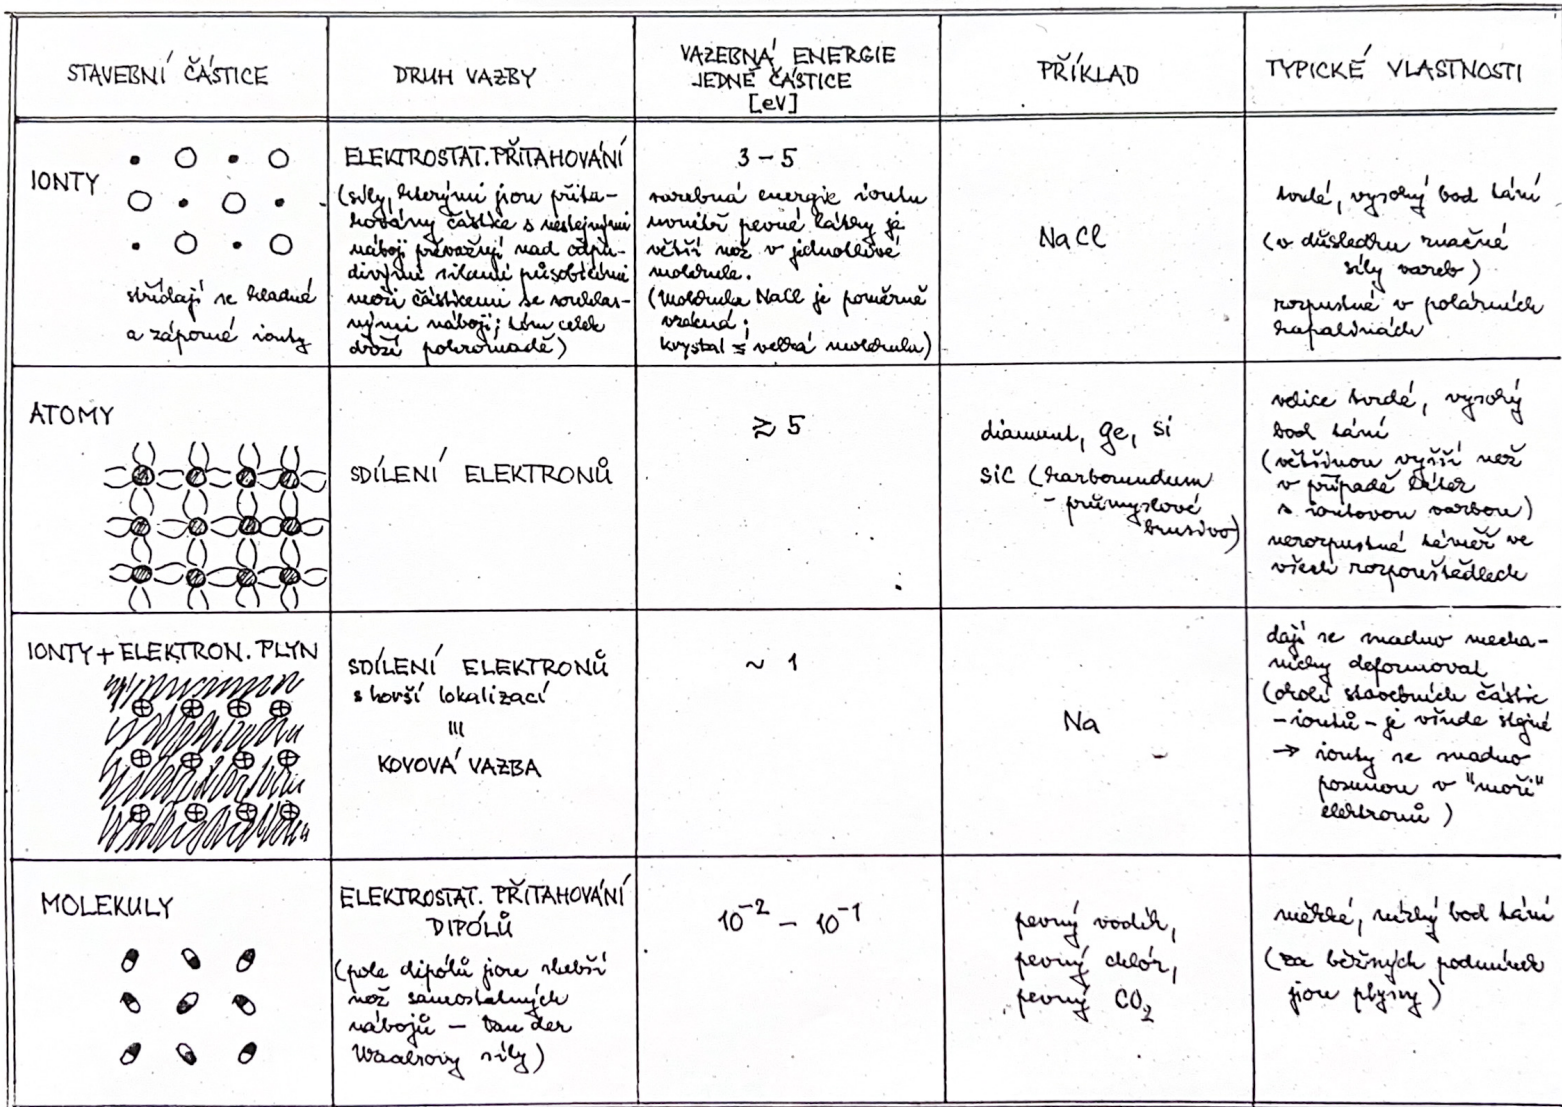 STAVEBNÍ ČÁSTICE
DRUH VAZBY
VAZEBNÁ ENERGIE
JEDNÉ ČÁSTICE
[eV]
PŘÍKLAD
TYPICKÉ VLASTNOSTI
IONTY
střídají se kladné
a záporné ionty
ELEKTROSTAT. PŘITAHOVÁNÍ
(síly, kterými jsou přita-
hovány částice s nestejnými
náboji převažují nad odpu-
divými silami působícími
mezi částicemi se souhlas-
nými náboji; tím celek
drží pohromadě)
3 – 5
vazebná energie iontu
uvnitř pevné látky je
větší než v jednotlivé
molekule.
(molekula NaCl je poměrně
vzácná;
krystal ≡ velká molekula)
NaCl
tvrdé, vysoký bod tání
(v důsledku značné
síly vazeb)
rozpustné v polárních
kapalinách
ATOMY
SDÍLENÍ ELEKTRONŮ
≳ 5
diamant, Ge, Si
SiC (karborundum
- průmyslové
brusivo)
velice tvrdé, vysoký
bod tání
(většinou vyšší než
v případě látek
s iontovou vazbou)
nerozpustné téměř ve
všech rozpouštědlech
IONTY + ELEKTRON. PLYN
SDÍLENÍ ELEKTRONŮ
s horší lokalizací
≡
KOVOVÁ VAZBA
~ 1
Na
dají se snadno mecha-
nicky deformovat
(okolí stavebních částic
- iontů - je všude stejné
→ ionty se snadno
posunou v "moři"
elektronů)
MOLEKULY
ELEKTROSTAT. PŘITAHOVÁNÍ
DIPÓLŮ
(pole dipólů jsou slabší
než samostatných
nábojů – Van der
Waalsovy síly)
10⁻² – 10⁻¹
pevný vodík,
pevný chlór,
pevný CO₂
měkké, nízký bod tání
(za běžných podmínek
jsou plyny)